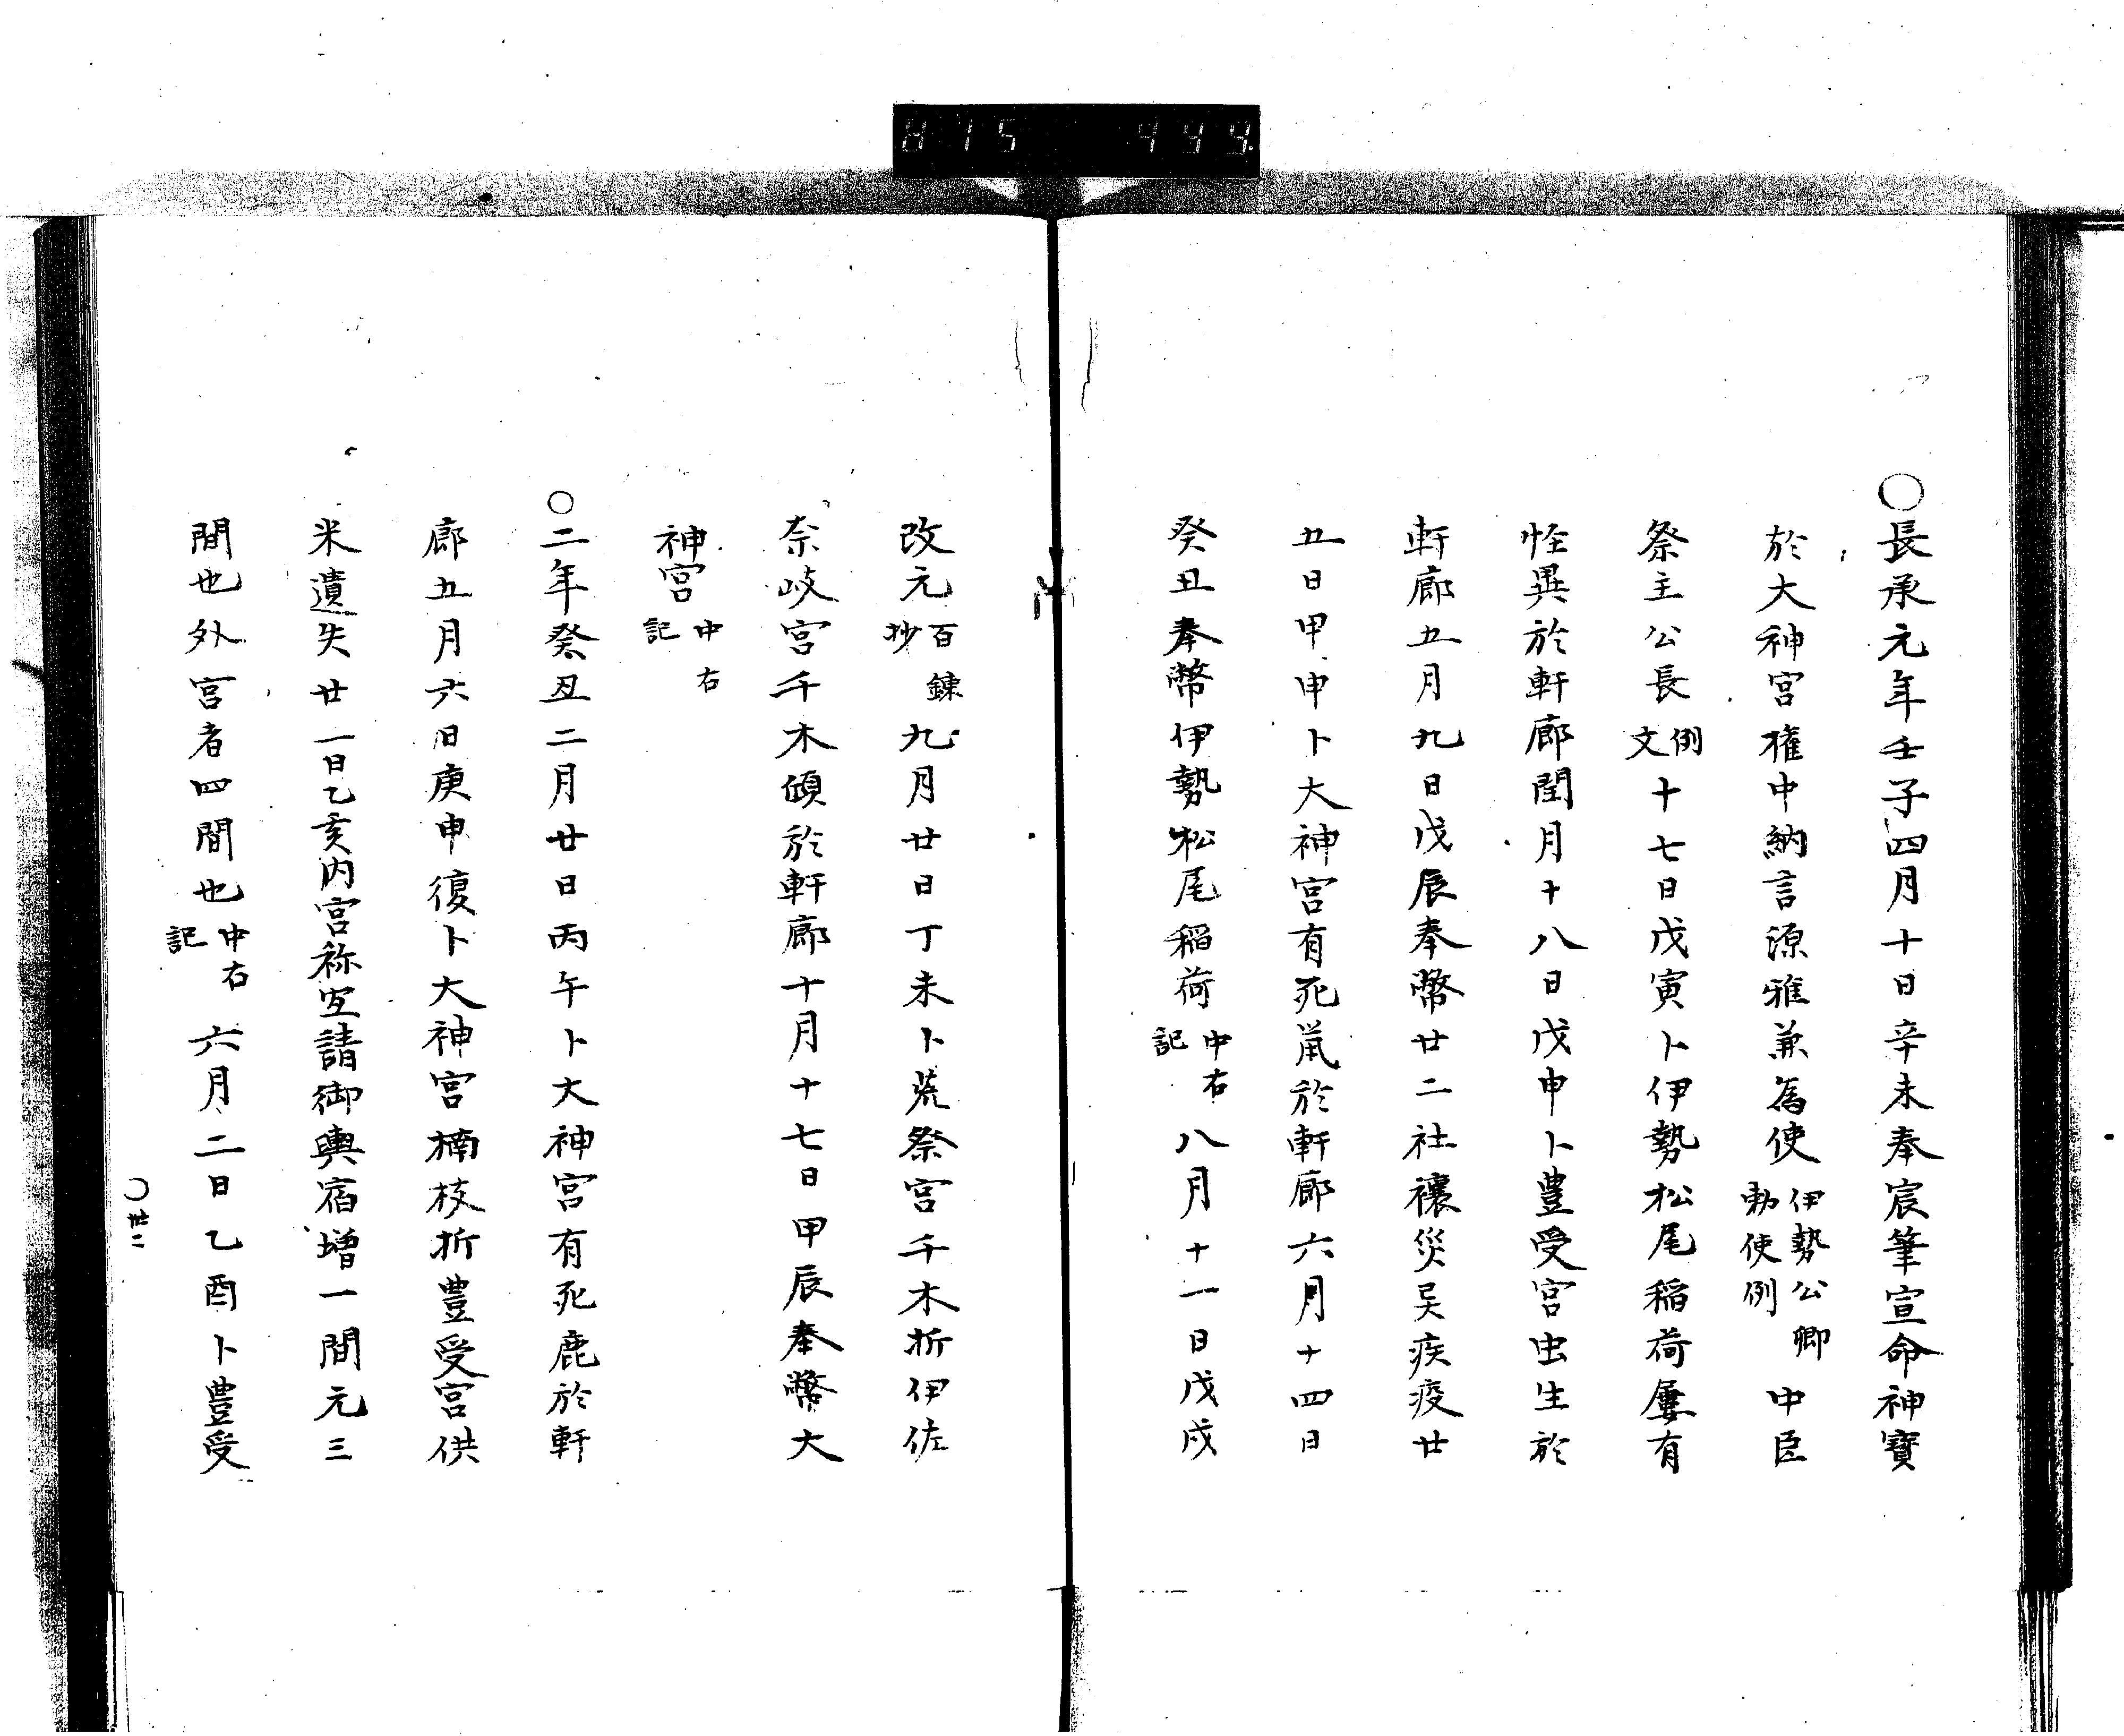 〇長承元年壬子四月十日辛未奉宸筆宣命神寶
於大神宮権中納言源雅兼為使伊勢公卿勅使例中臣
祭主公長例文十七日戊寅卜伊勢松尾稲荷屢有
怪異於軒廊閏月十八日戊申卜豊受宮虫生於
軒廊五月九日戊辰奉幣廿二社禳災异疾疫廿
五日甲申卜大神宮有死鼠於軒廊六月十四日
癸丑奉幣伊勢松尾稲荷中右記八月十一日戊戌
改元百錬抄九月廿日丁未卜荒祭宮千木折伊佐
奈岐宮千木傾於軒廊十月十七日甲辰奉幣大
神宮中右記
〇二年癸丑二月廿日丙午卜大神宮有死鹿於軒
廊五月六日庚申復卜大神宮楠枝折豊受宮供
米遺失廿一日乙亥内宮祢宜請御輿宿増一間元三
間也外宮者四間也中右記六月二日乙酉卜豊受
〇廿二
815 499